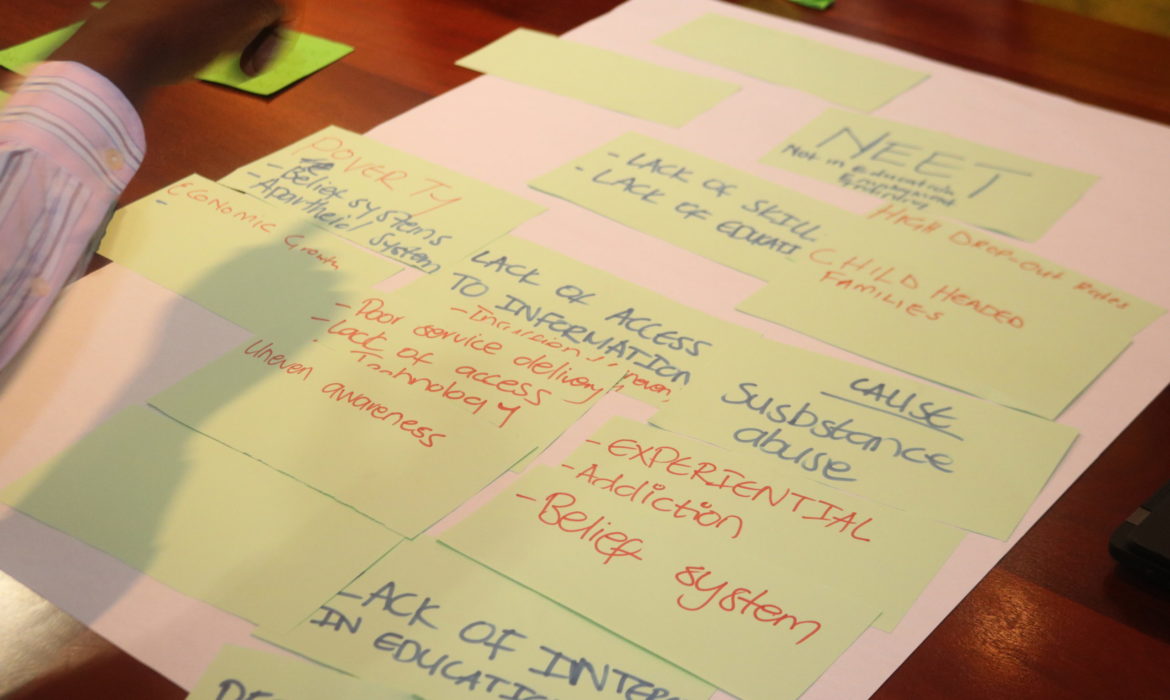 NEET
Not in education
Employment
HIGH DROP-OUT Rates
CHILD HEADED
FAMILIES
- LACK OF SKILL
- LACK OF EDUCATI
POVERTY
- Belief systems
- Apartheid System
- Economic Growth
LACK OF ACCESS
TO INFORMATION
- Poor service delivery
- Lack of access
Technology
Uneven awareness
CAUSE
Susbstance
abuse
- EXPERIENTIAL
- Addiction
- Belief system
LACK OF INTER
IN EDUCATI